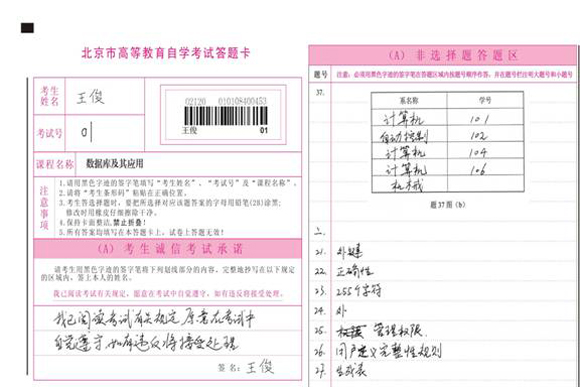 北京市高等教育自学考试答题卡
考生姓名 王俊
02120 010108400453
王俊 01
考试号 01
课程名称 数据库及其应用
注意事项
1.请用黑色字迹的签字笔填写“考生姓名”、“考试号”及“课程名称”。
2.请将“考生条形码”粘贴在正确位置。
3.考生答选择题时，要把所选择对应该题答案的字母用铅笔(2B)涂黑;
修改时用橡皮仔细擦除干净。
4.保持卡面整洁,禁止折叠!
5.所有答案均填写在本答题卡上，试卷上答题无效!
(A) 考生诚信考试承诺
请考生用黑色字迹的签字笔将下划线部分的内容，完整地抄写在以下规定的区域内，签上本人的姓名。
我已阅读考试有关规定，愿意在考试中自觉遵守，如有违反将接受处理。
我已阅读考试有关规定 愿意在考试中
自觉遵守 如有违反将接受处理
签名: 王俊
(A) 非选择题答题区
题号 注意：必须用黑色字迹的签字笔在答题区域内按题号顺序作答，并在题号栏注明大题号和小题号
37.
系名称 学号
计算机 101
自动控制 102
计算机 104
计算机 106
机械
题37图 (b)
二、
21. 外键
22. 正确性
23. 255个字符
24. 外
25. 管理权限
26. 用户定义完整性规则
27. 生成表